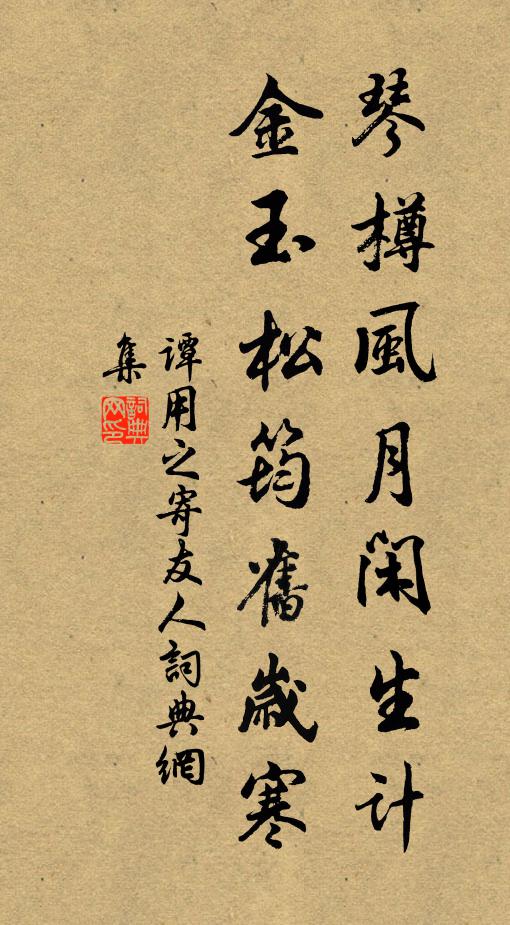 琴樽風月閑生計
金玉松筠舊歲寒
譚用之寄友人詞典網
集
詞典網印